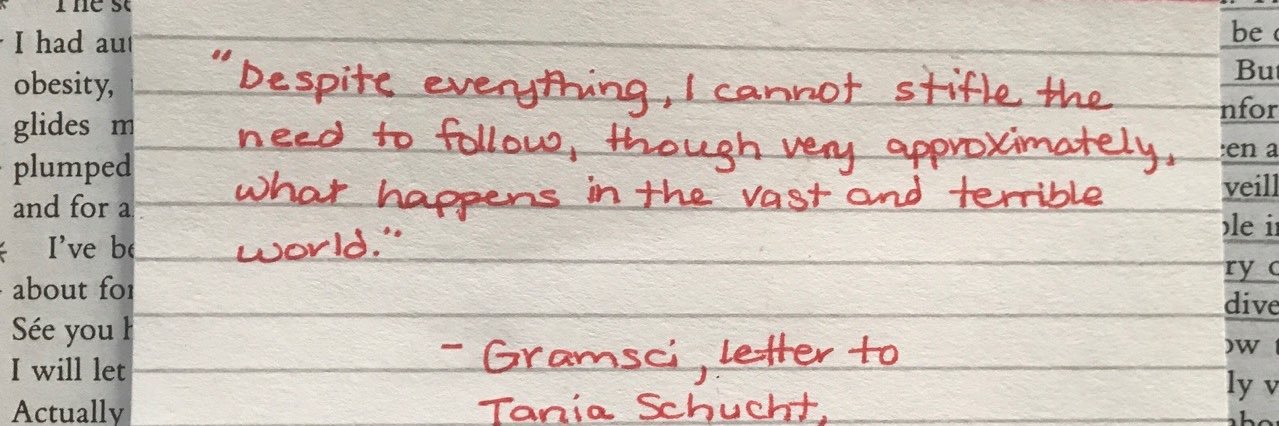 The
I had
obesity,
glides
plumped
and for a
I've
about
Sée you
I will let
Actually
"Despite everything, I cannot stifle the
need to follow, though very approximately,
what happens in the vast and terrible
world."
- Gramsci, letter to
Tania Schucht,
be
But
ry
ly